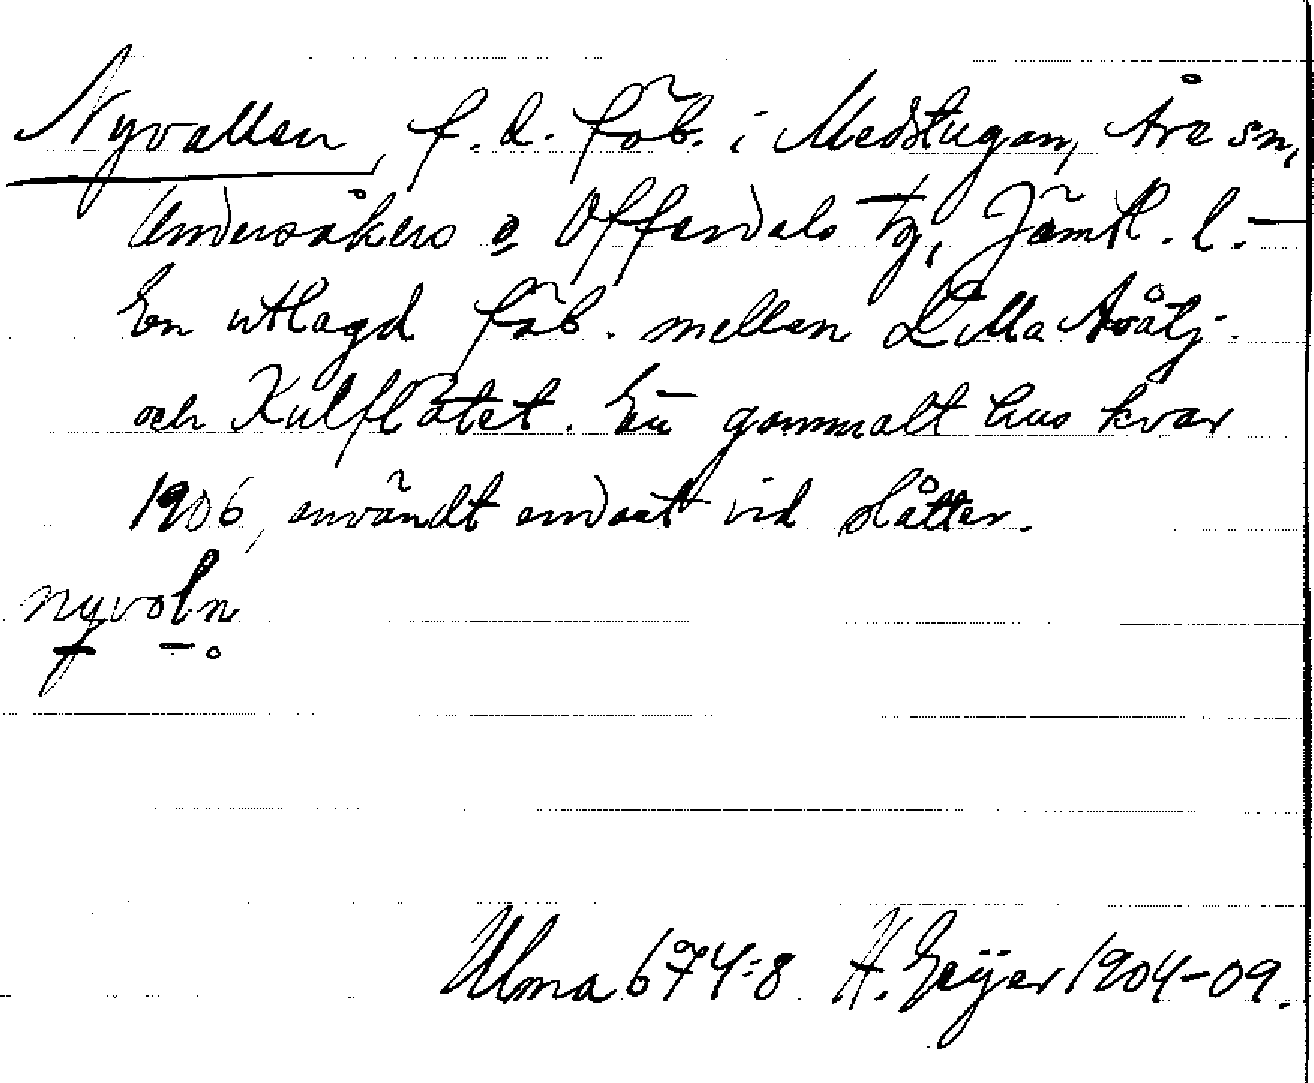 Nyvallen, f. d. fäb. i Medstugan, Åre sn,
Undersåkers o Offerdals tg, Jämtl. l. -
En utlagd fäb. mellen Lilla
och Kulflåtet. Ett gammalt hus kvar
1906, användt endast vid slåtter.
nyvoln
Ulma 674:8 H. Geijer 1904-09.